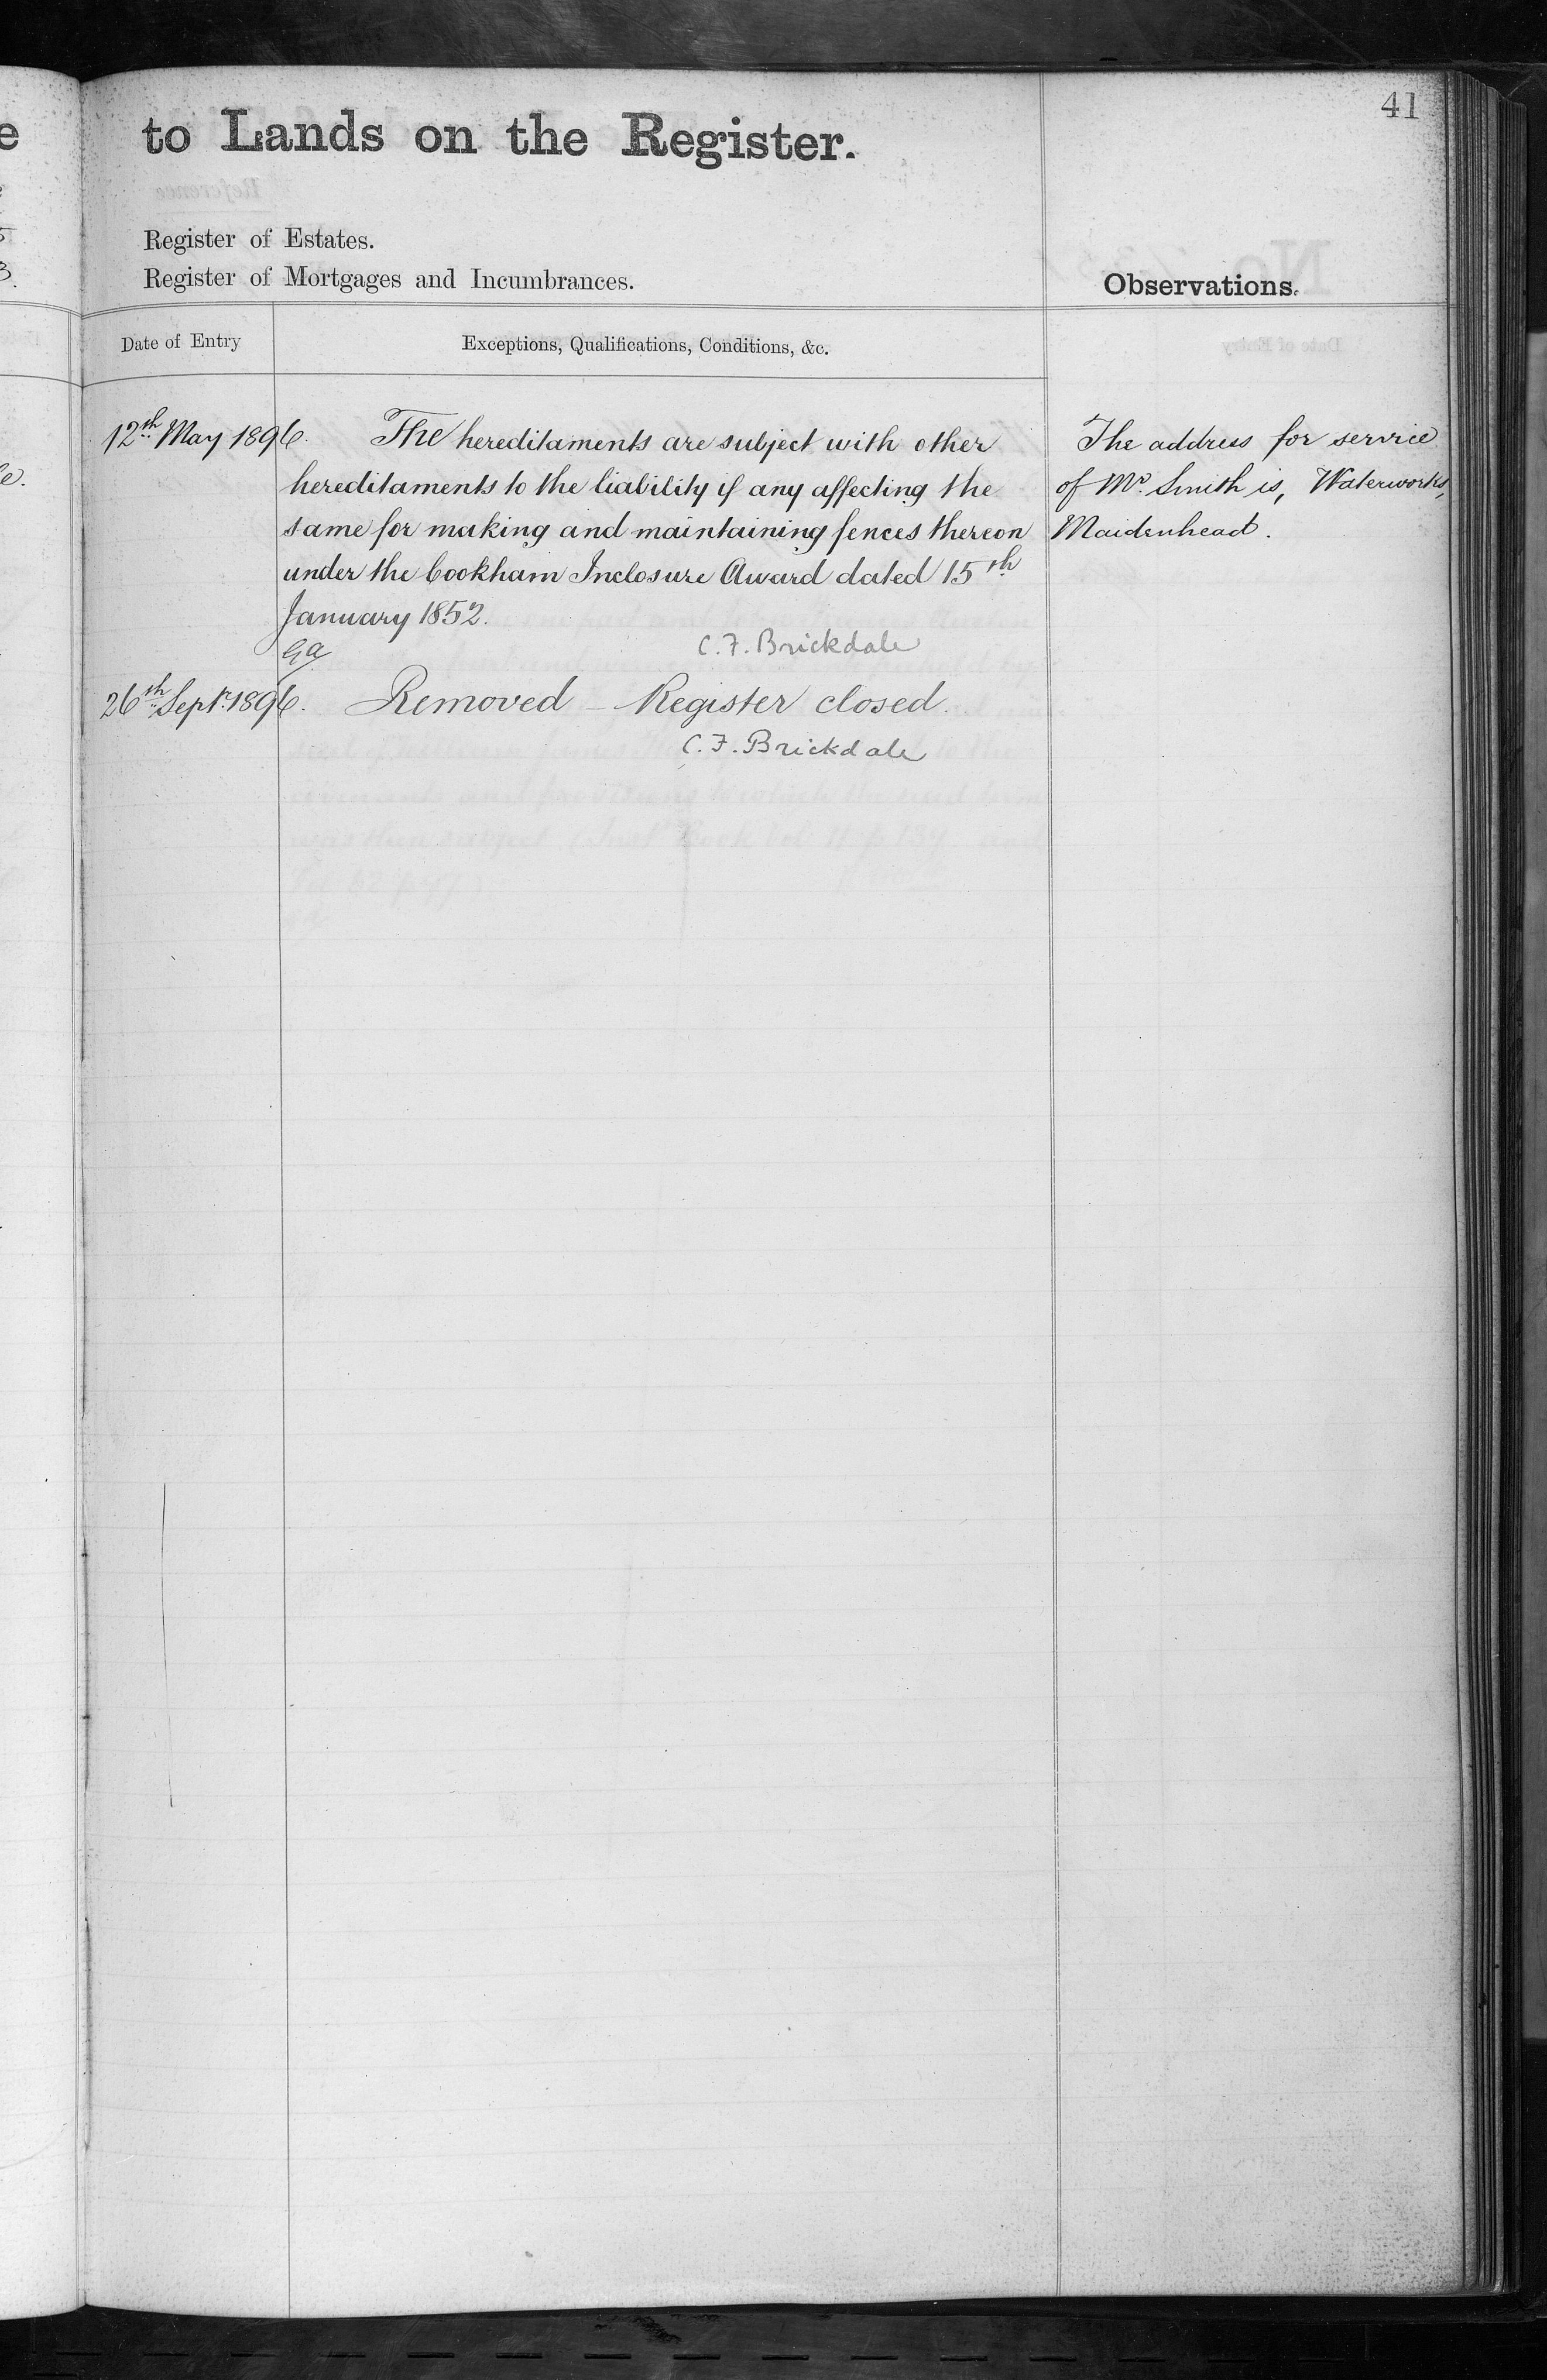 41
to Lands on the Register.
Register of Estates.
Register of Mortgages and Incumbrances.
Observations.
Date of Entry
Exceptions, Qualifications, Conditions, &c.
12th May 1896.
The hereditaments are subject with other
hereditaments to the liability if any affecting the
same for making and maintaining fences thereon
under the Cookham Inclosure Award dated 15th
January 1852.
C. F. Brickdale
26th Septr. 1896.
Removed – Register closed.
C. F. Brickdale
The address for service
of Mr. Smith is, Waterworks,
Maidenhead.